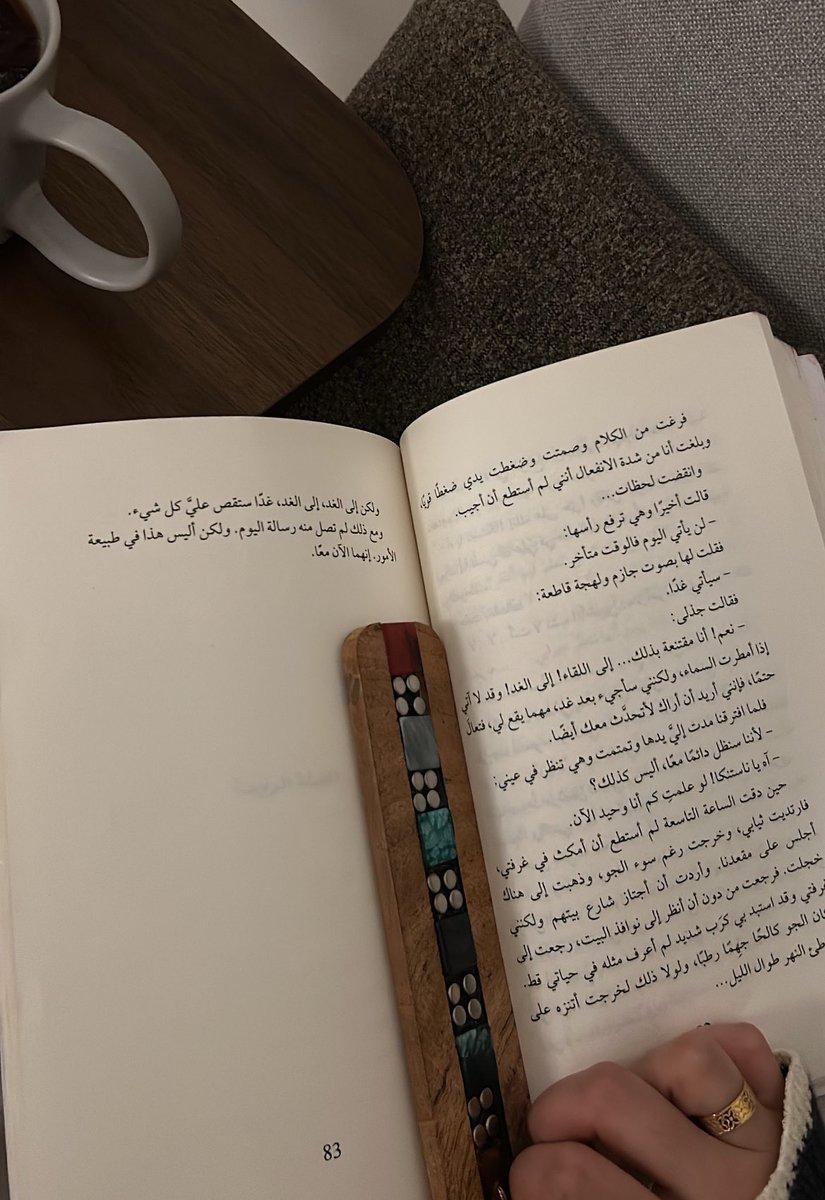 فرغت من الكلام وصمتت وضغطت يدي ضغطًا قويًا،
وبلغت أنا من شدة الانفعال أنني لم أستطع أن أجيب.
وانقضت لحظات...
قالت أخيرًا وهي ترفع رأسها:
- لن يأتي اليوم فالوقت متأخر.
فقلت لها بصوت جازم ولهجة قاطعة:
- سيأتي غدًا.
فقالت جذلى:
- نعم! أنا مقتنعة بذلك... إلى اللقاء! إلى الغد! وقد لا آتي
إذا أمطرت السماء، ولكنني سأجيء بعد غد، مهما يقع لي، فتعال
حتمًا، فإنني أريد أن أراك لأتحدَّث معك أيضًا.
فلما افترقنا مدت إليَّ يدها وتمتمت وهي تنظر في عيني:
- لأننا سنظل دائمًا معًا، أليس كذلك؟
- آه يا ناستنكا! لو علمتِ كم أنا وحيد الآن.
حين دقت الساعة التاسعة لم أستطع أن أمكث في غرفتي،
فارتديت ثيابي، وخرجت رغم سوء الجو، وذهبت إلى هناك
أجلس على مقعدنا. وأردت أن أجتاز شارع بيتهم ولكنني
خجلت. فرجعت من دون أن أنظر إلى نوافذ البيت، رجعت إلى
غرفتي وقد استبد بي كَرَب شديد لم أعرف مثله في حياتي قط.
كان الجو كالحًا جهمًا رطبًا، ولولا ذلك لخرجت أتنزه على
النهر طوال الليل...
ولكن إلى الغد، إلى الغد، غدًا ستقص عليَّ كل شيء.
ومع ذلك لم تصل منه رسالة اليوم. ولكن أليس هذا في طبيعة
الأمور. إنهما الآن معًا.
83